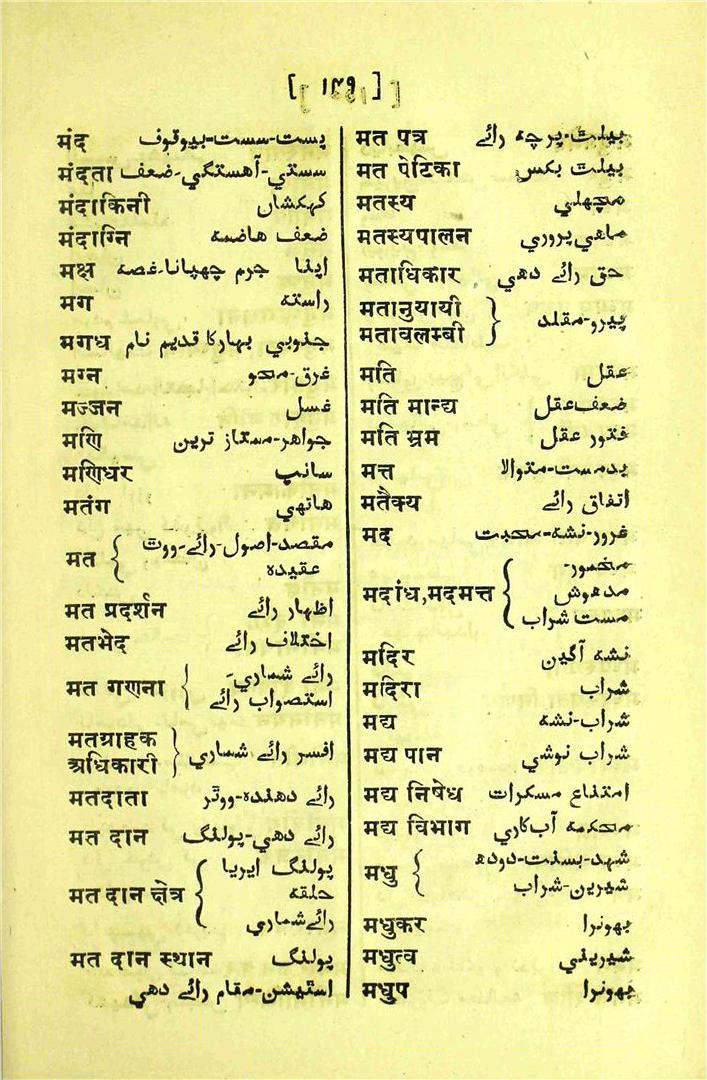 मंद پست-سست-بیوقوف
मंदता سستي-آهستگي-ضعف
मंदाकिनी کہکشاں
मंदाग्नि ضعف هاضمه
मक्ष اپنا جرم چهپانا-غصه
मग راسته
मगध جنوبي بہار کا قدیم نام
मग्न غرق-محو
मज्जन غسل
मणि جواهر-ممتاز ترین
मणिधर سانپ
मतंग هاتهي
मत { مقصد-اصول-رائے-ووٹ
عقیده
मत प्रदर्शन اظہار رائے
मतभेद اختلاف رائے
मत गणना { رائے شماري-
استصواب رائے
मतग्राहक
अधिकारी } افسر رائے شماري
मतदाता رائے دهنده-ووٹر
मत दान رائے دهي-پولنگ
मत दान क्षेत्र { پولنگ ایریا
حلقه
رائے شماري
मत दान स्थान پولنگ
استیشن-مقام رائے دهي
मत पत्र بیلٹ-پرچه رائے
मत पेटिका بیلٹ بکس
मतस्य مچهلي
मतस्यपालन ماهي پروري
मताधिकार حق رائے دهي
मतानुयायी
मतावलम्बी } پیرو-مقلد
मति عقل
मति मान्द्य ضعف عقل
मति भ्रम فتور عقل
मत्त بدمست-متوالا
मतैक्य اتفاق رائے
मद غرور-نشه-محبت
मदांध,मदमत्त { مخمور-
مدهوش
مست شراب
मदिर نشه آگین
मदिरा شراب
मद्य شراب-نشه
मद्य पान شراب نوشي
मद्य निषेध امتناع مسکرات
मद्य विभाग محکمه آب کاري
मधु { شهد-بسنت-دوده
شیرین-شراب
मधुकर بهونرا
मधुत्व شیریني
मधुप بهونرا